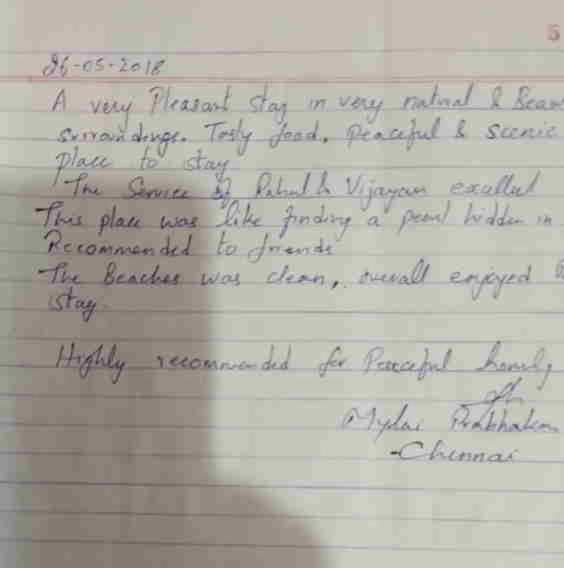 5
26-05-2018
A very Pleasant stay in very natural & Beau
surroundings. Tasty food, peaceful & scenic
place to stay
The Service of Rahul & Vijayan excellent
This place was like finding a pearl hidden in
Recommended to friends
The Beaches was clean, overall enjoyed
stay.
Highly recommended for Peaceful homely
Mylai Prabhakar
-Chennai